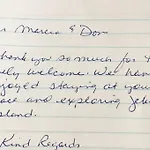 Marcia & Don
hank you so much for
ely welcome. We have
joyed staying at your
ace and exploring
sland.
Kind Regards